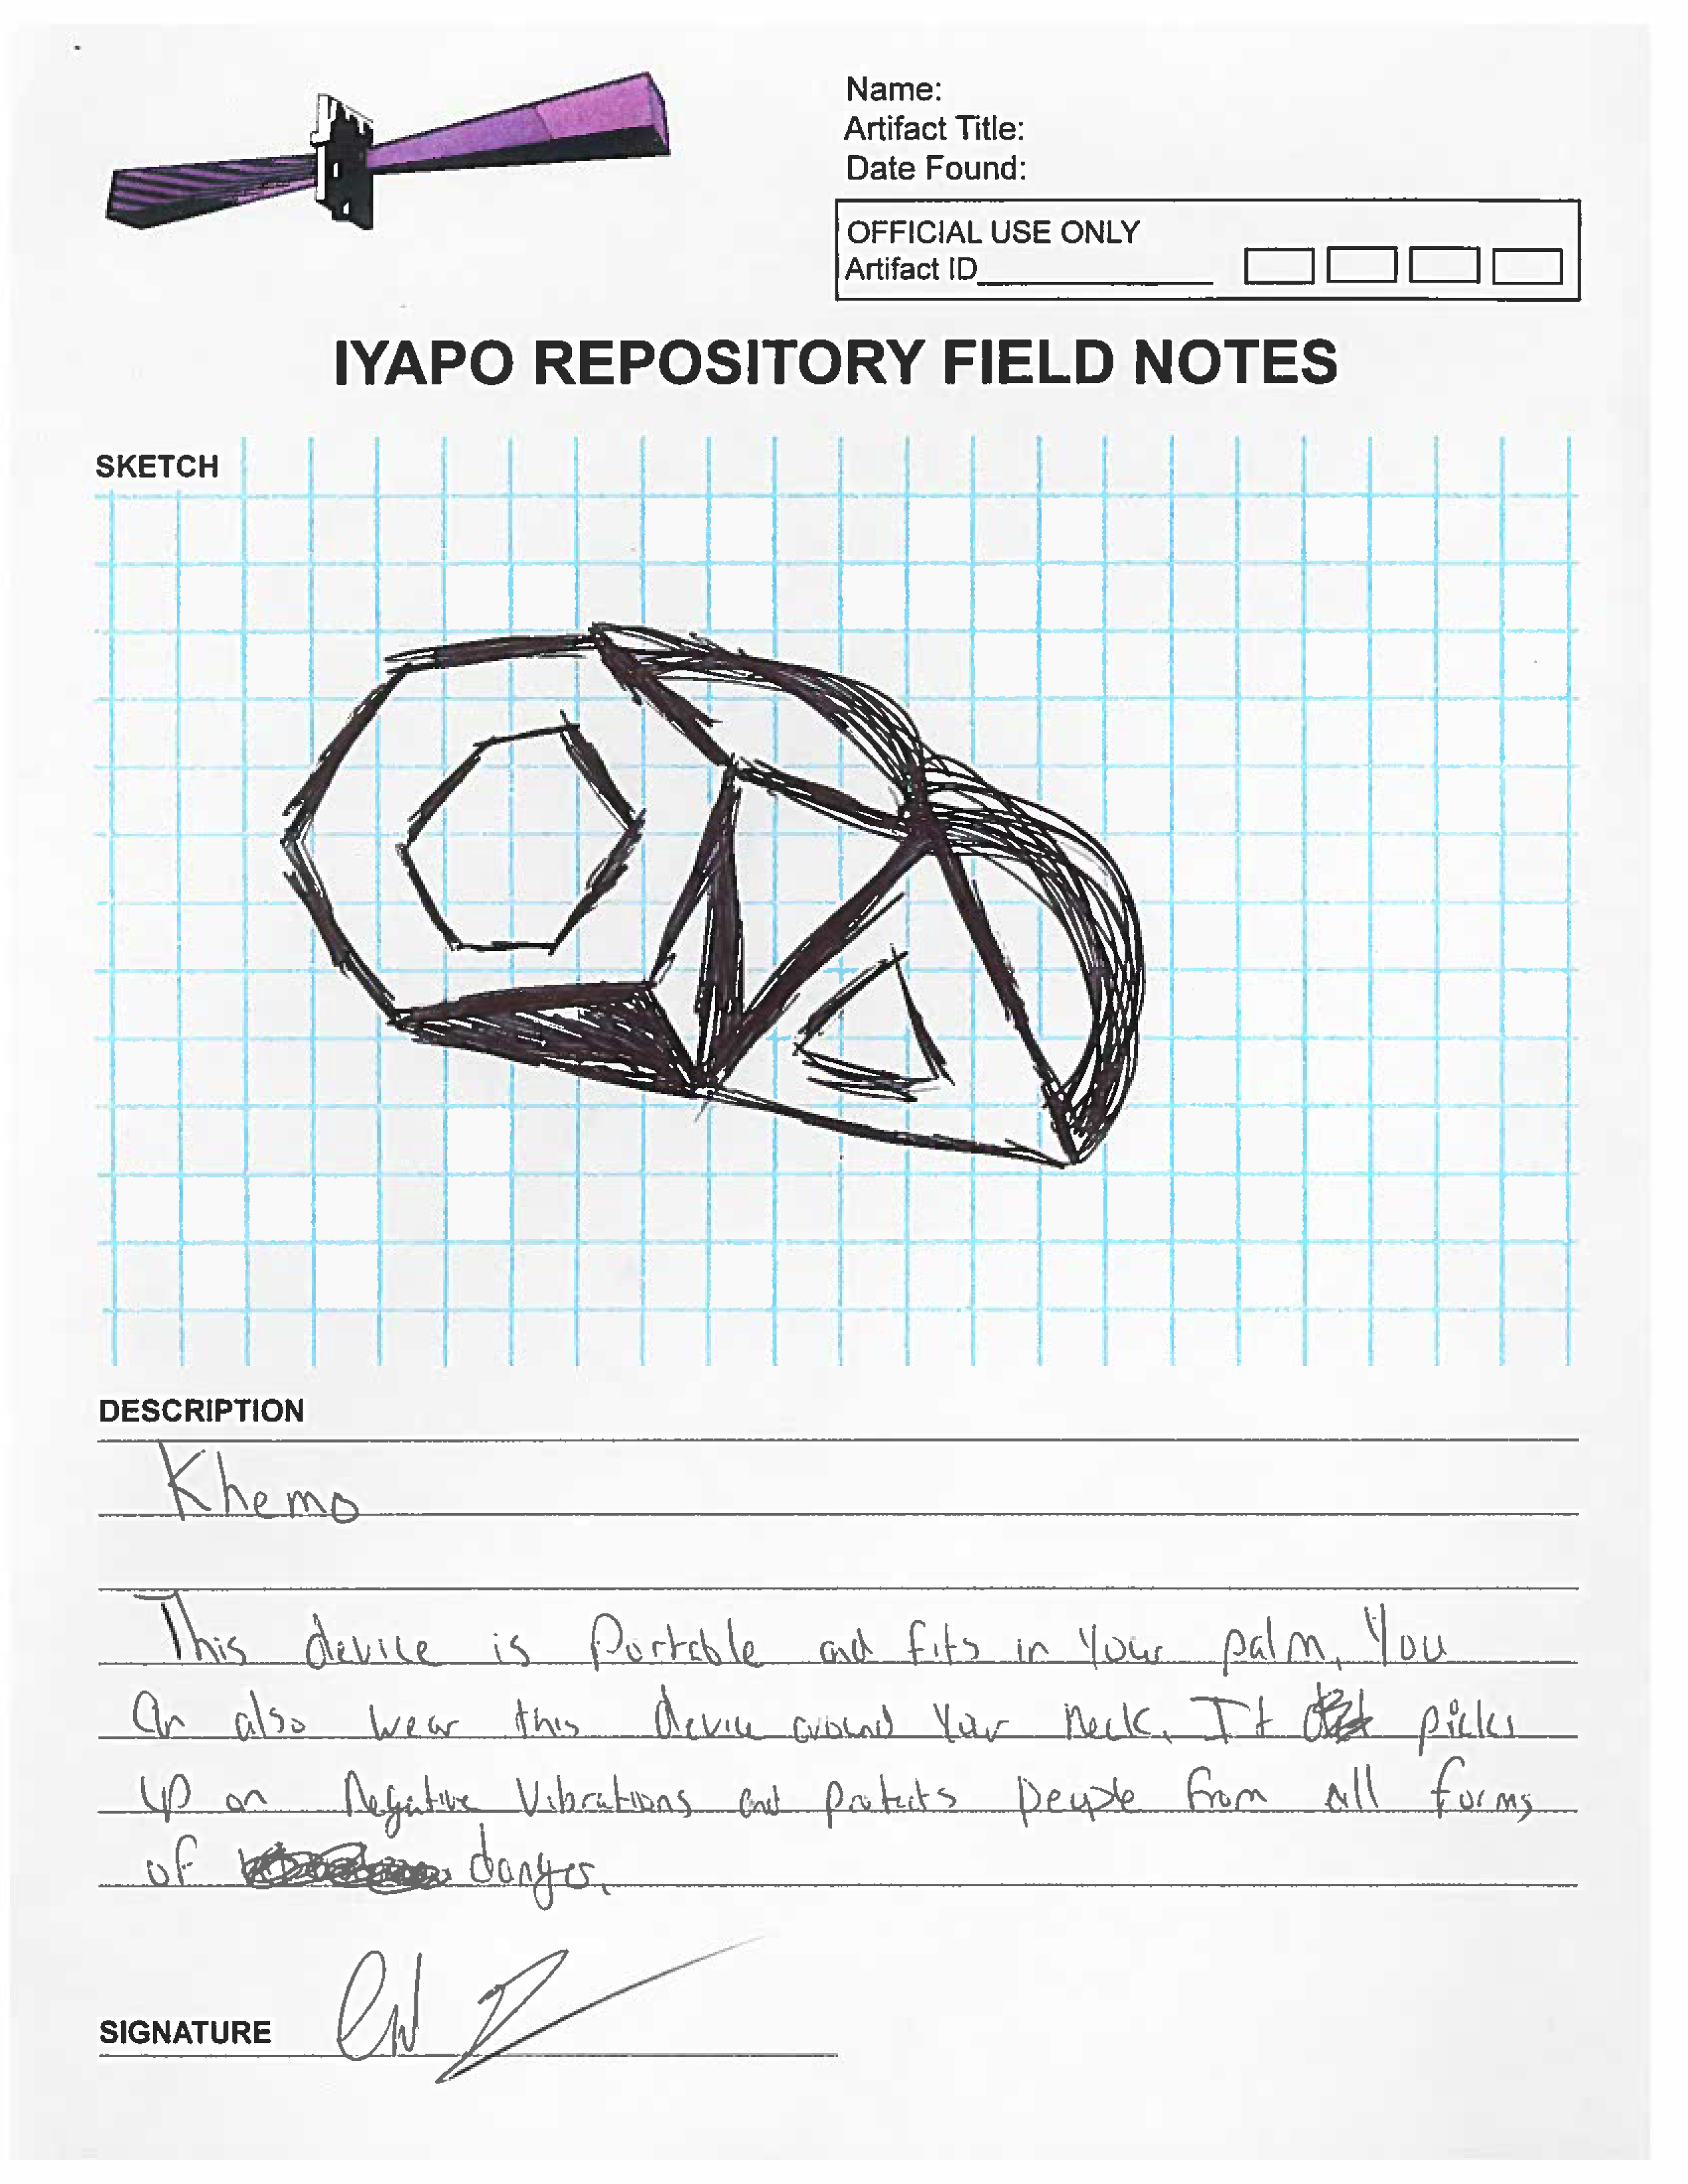 Name:
Artifact Title:
Date Found:
OFFICIAL USE ONLY
Artifact ID
IYAPO REPOSITORY FIELD NOTES
SKETCH
DESCRIPTION
Khemo
This device is Portable and fits in Your palm. You
Can also wear this device around Your Neck. It picks
up on Negative Vibrations and protects people from all forms
of danger.
SIGNATURE